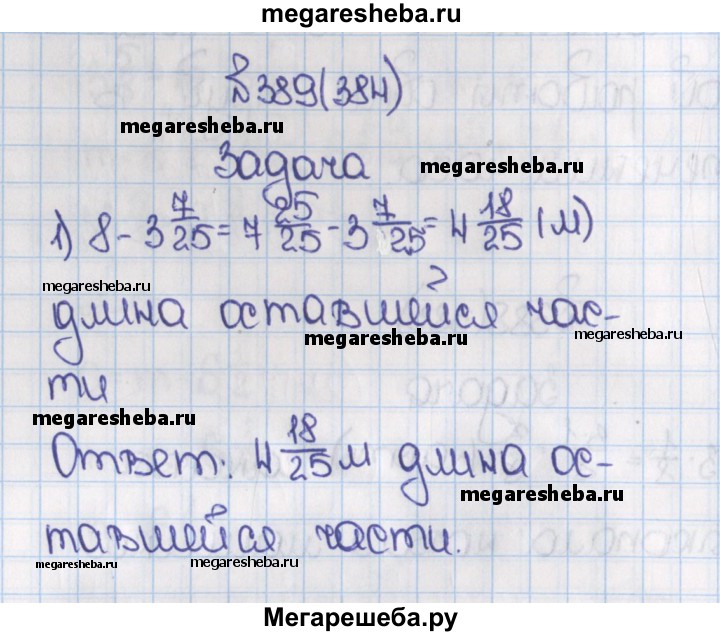 megaresheba.ru
№389(384)
megaresheba.ru
Задача
megaresheba.ru
1) 8 - 3 7/25 = 7 25/25 - 3 7/25 = 4 18/25 (м)
megaresheba.ru
длина оставшейся час-
megaresheba.ru
megaresheba.ru
ти
megaresheba.ru
Ответ: 4 18/25 м длина ос-
megaresheba.ru
тавшейся части.
megaresheba.ru
megaresheba.ru
Мегарешеба.ру